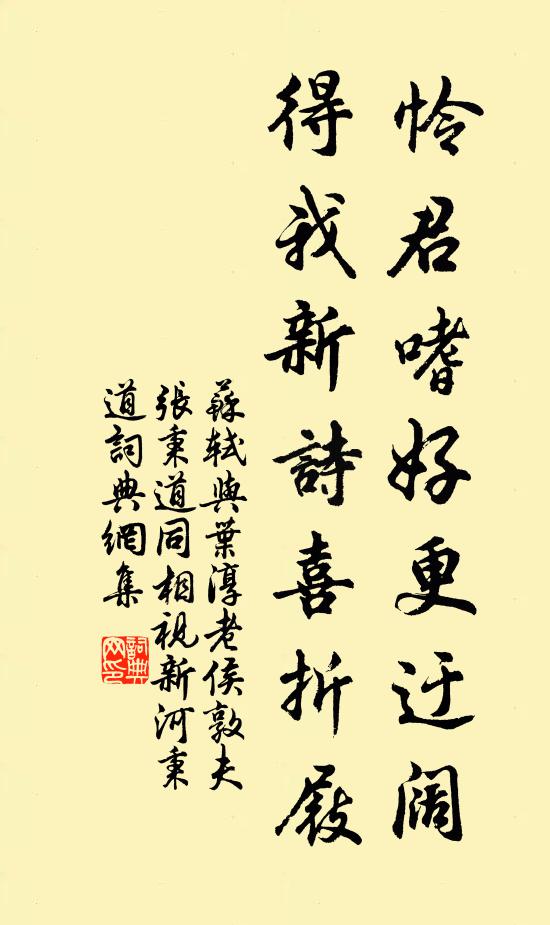 憐君嗜好更迂闊
得我新詩喜折屐
蘇軾與葉淳老侯敦夫
張秉道同相視新河秉
道詞典網集
詞典
网印